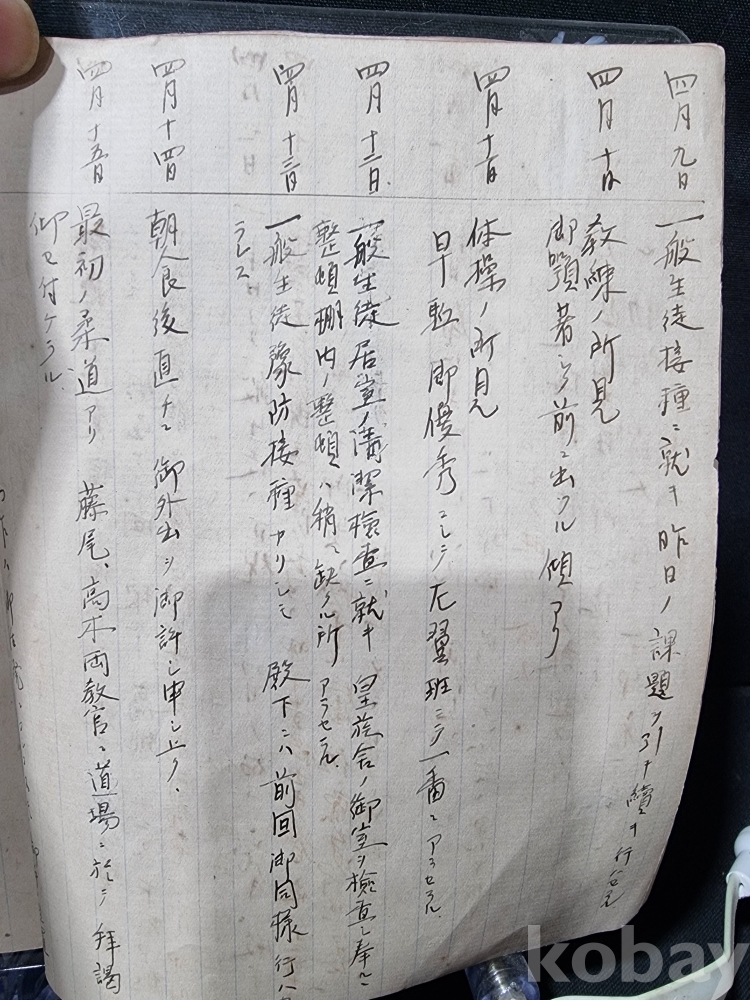 四月九日
一般生徒接種ニ就キ昨日ノ課題ヲ引キ續キ行ハセラル
四月十日
教練ノ所見
御顎著シク前ニ出ツル傾アリ
四月十一日
体操ノ所見
早駈 御優秀ニシテ左翼班ニテ一番ニアラセラル
四月十二日
一般生徒居室ノ清潔檢査ニ就キ 皇族舎ノ御室ヲ檢査シ奉ルニ
整頓棚内ノ整頓ハ稍々缺クル所アラセラル
四月十三日
一般生徒豫防接種アリシモ 殿下ニハ前回御同様行ハセ
ラレス
四月十四日
朝食後直チニ御外出ヲ御許シ申シ上ク、
四月十五日
最初ノ柔道アリ 藤尾、高木両教官ニ道場ニ於テ 拜謁
仰セ付ケラル
kobay